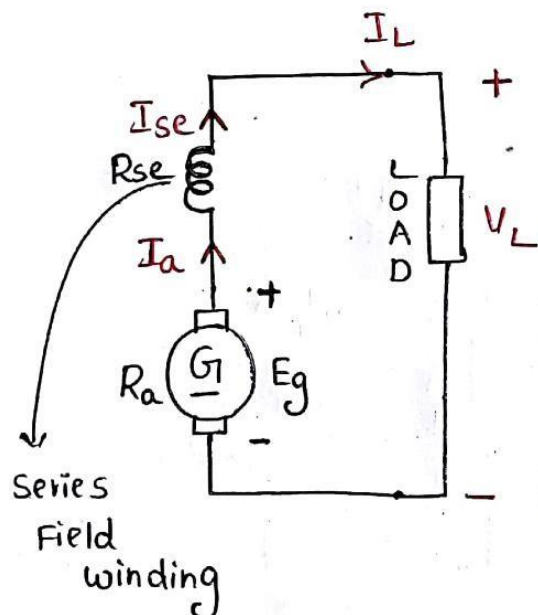 IL
+
Ise
Rse
L
O
A
D
VL
Ia
+
Ra
G
Eg
-
-
Series
Field
winding